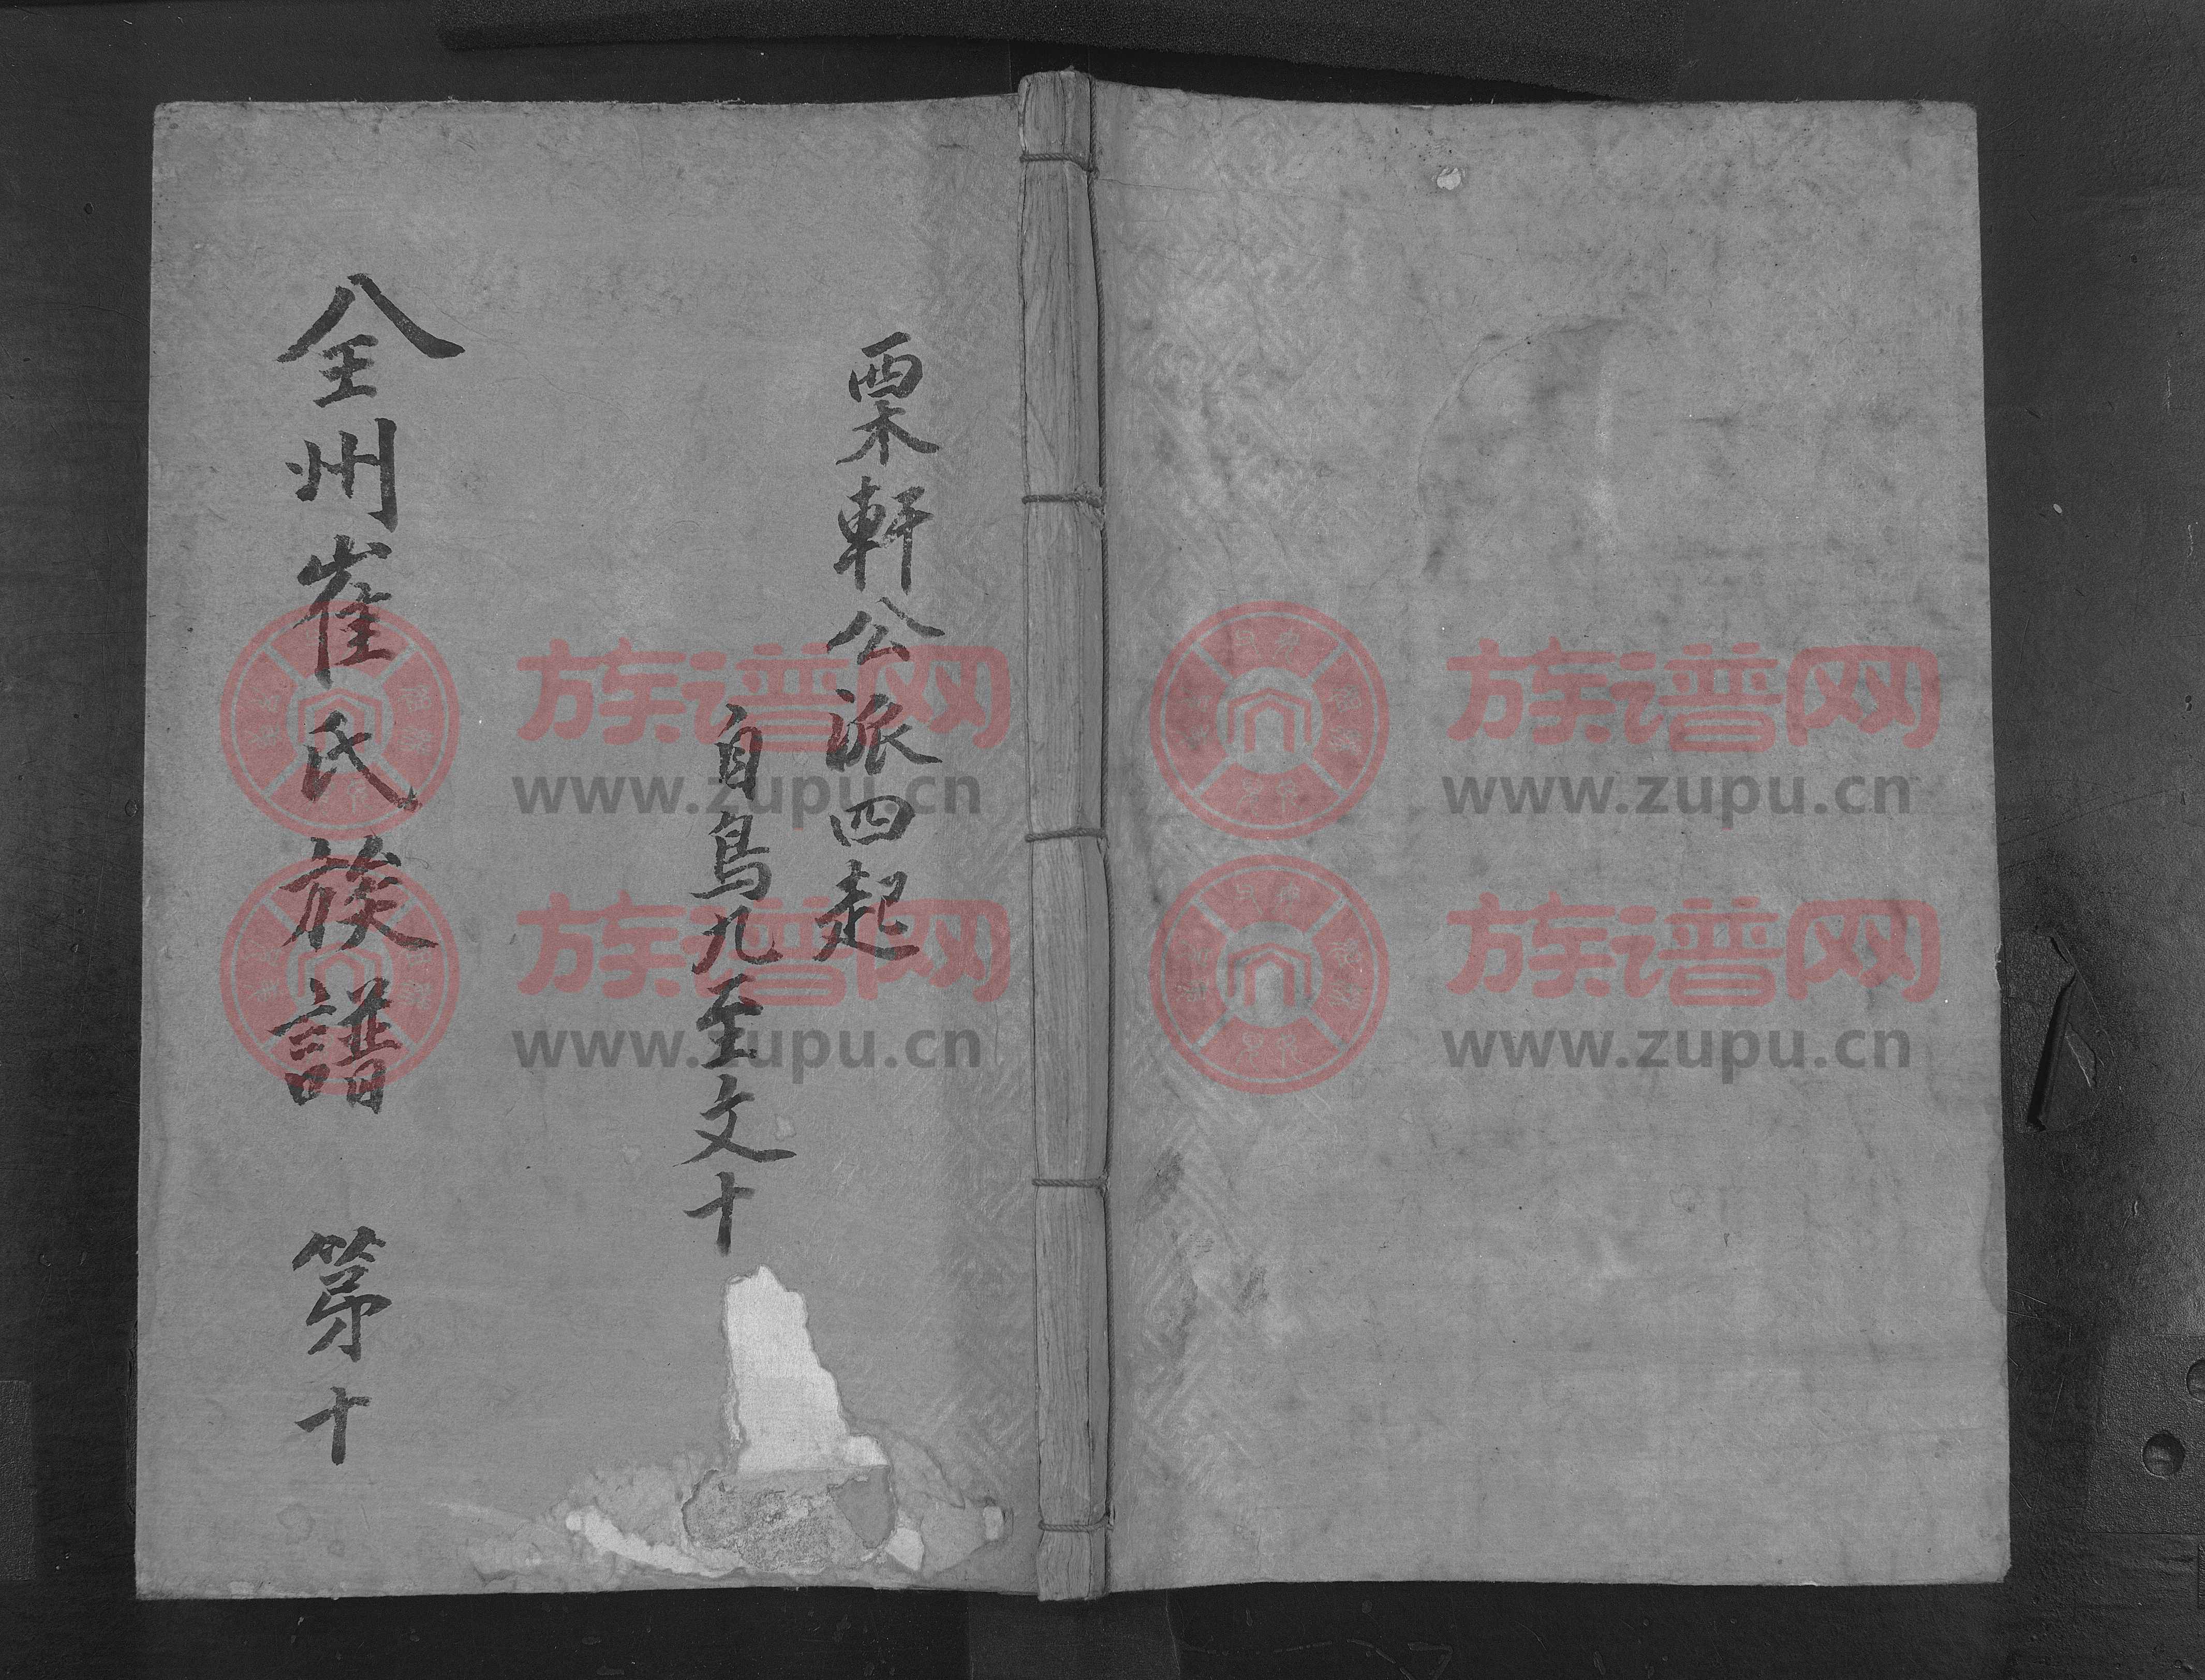 栗軒公派四起
自鳥九至文十
全州崔氏族譜 第十
族谱网
www.zupu.cn
族谱网
www.zupu.cn
族谱网
www.zupu.cn
族谱网
www.zupu.cn